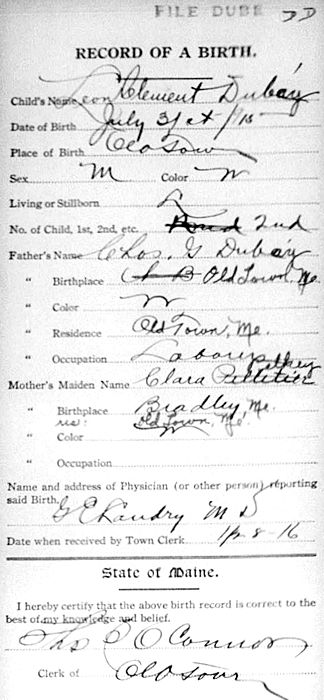 FILE DUBE DD
RECORD OF A BIRTH.
Child's Name Leon Clement Dubay
Date of Birth July 31st / 15
Place of Birth Old Town
Sex M Color W
Living or Stillborn L
No. of Child, 1st, 2nd, etc. 2nd
Father's Name Chas. G Dubay
" Birthplace Old Town, Me.
" Color W
" Residence Old Town, Me.
" Occupation Laborer
Mother's Maiden Name Clara Pelletier
" Birthplace Bradley, Me.
res: Old Town, Me.
" Color W
" Occupation
Name and address of Physician (or other person) reporting
said Birth,
G E Landry M D
Date when received by Town Clerk 8-16
State of Maine.
I hereby certify that the above birth record is correct to the
best of my knowledge and belief.
Thos O'Connor
Clerk of Old Town